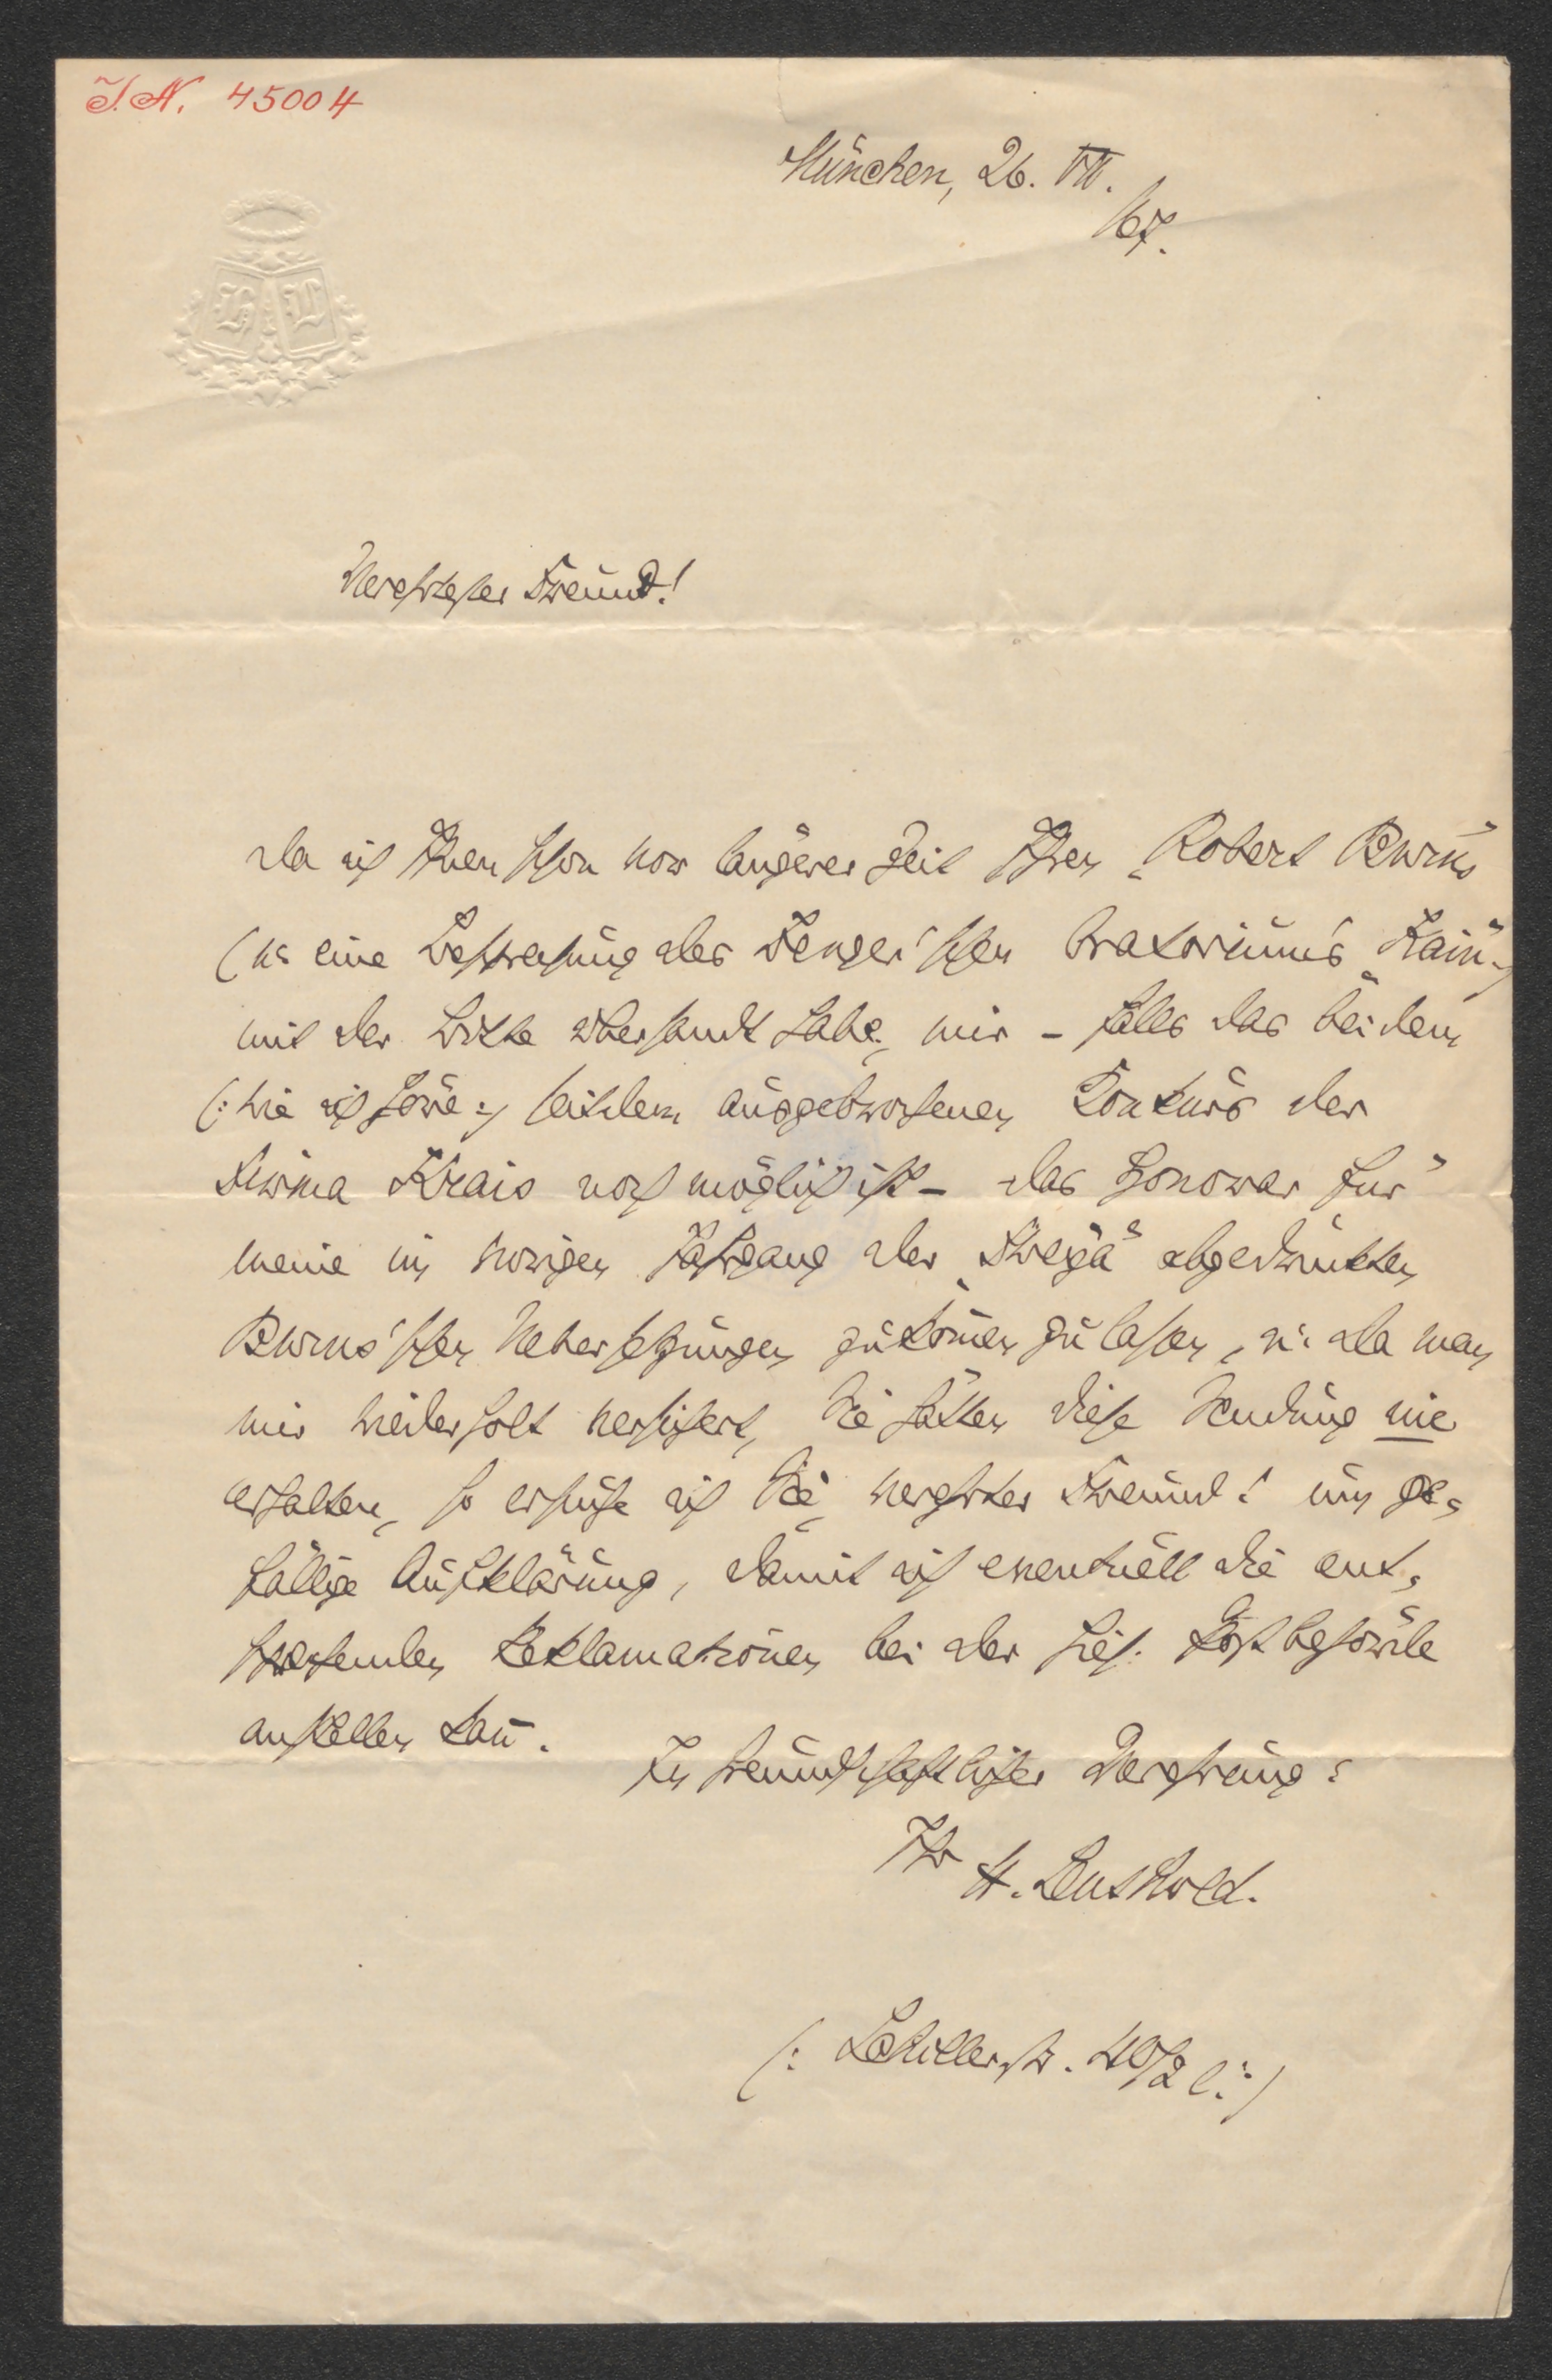 I.N. 45004
München, 26. VII.
/67.
H L
Verehrtester Freund!
Da ich Ihnen schon vor längerer Zeit Ihren „Robert Burns"
(u. eine Besprechung des Zenger'schen Oratoriums „Kain")
mit der Bitte übersandt habe, mir – falls das bei dem
(: wie ich höre :) seitdem ausgebrochenen Konkurs der
Firma Krais noch möglich ist – das Honorar für
meine im vorigen Jahrgang der „Freya" abgedruckten
Burns'schen Uebersetzungen zukom̄en zu lassen, u. da man
mir wiederholt versichert, Sie hätten diese Sendung nie
erhalten, so ersuche ich Sie, verehrter Freund! um ge-
fällige Aufklärung, damit ich eventuell die ent-
sprechenden Reklamationen bei der hies. Postbehörde
anstellen kan̄.
In freundschaftlicher Verehrung:
Ihr H. Leuthold.
(: Schillerstr. 40/2 l. :)